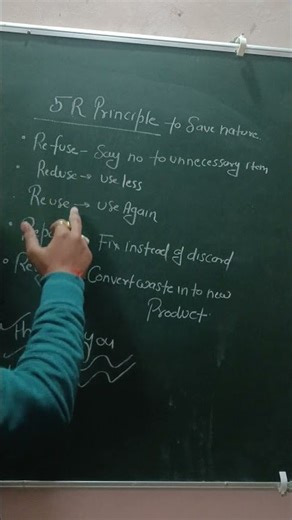 5R Principle to Save nature
• Refuse - Say no to unnecessary item
• Reduse → use less
• Reuse → use Again
• Fix instead of discard
• Convert waste in to new
Product.
you